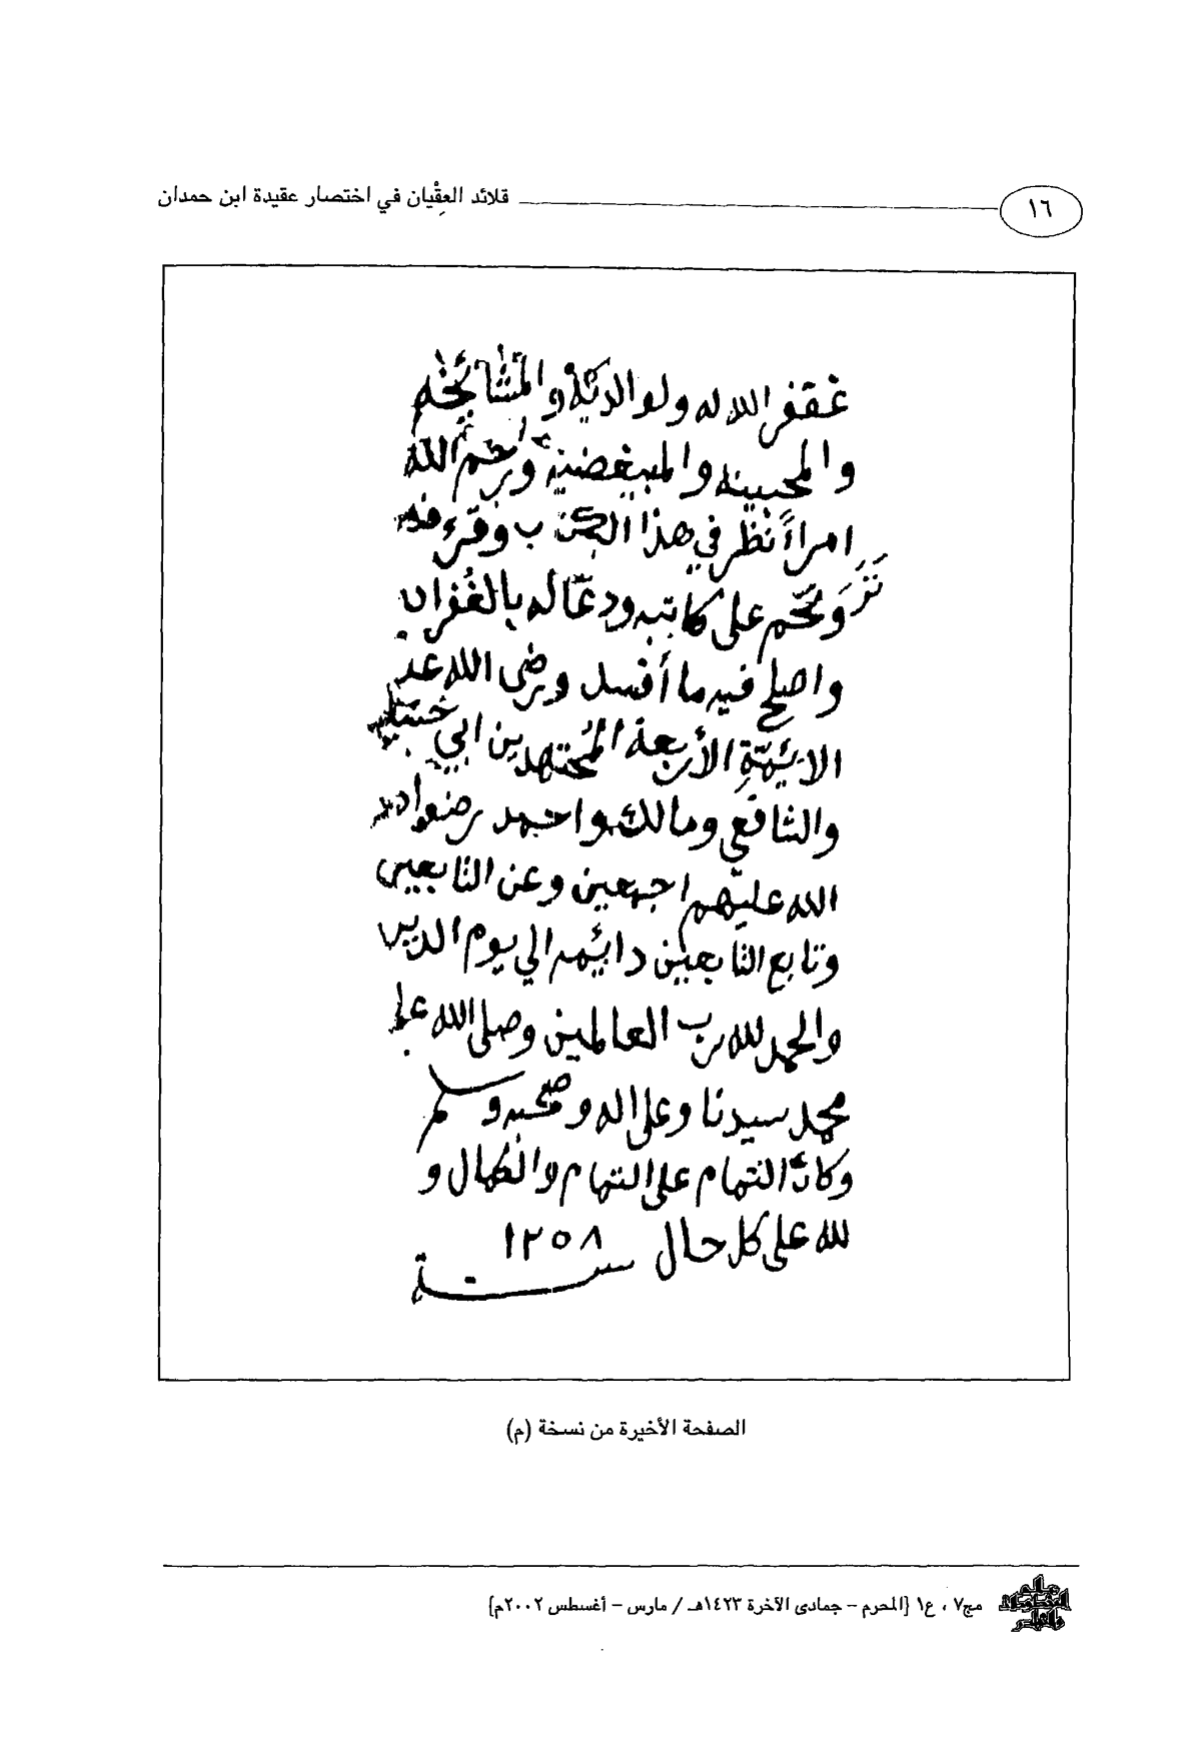 ١٦
قلائد العِقْيان في اختصار عقيدة ابن حمدان
غفر الله له ولوالديه والمشائخه
والمحبينه والمبغضينه ورحم الله
امراءً نظر في هذا الكتاب وقرء فيه
وترحم على كاتبه ودعا له بالغفران
واصلح فيه ما أفسد ورضى الله عن
الائمّة الأربعة المجتهدين ابي حنيفه
والشافعي ومالك واحمد رضوان
الله عليهم اجمعين وعن التابعين
وتابع التابعين دائيمه الي يوم الدين
والحمد لله رب العالمين وصلى الله على
محمد سيدنا وعلى اله وصحبه وسلم
وكان التمام على التمام والكمال و
لله على كل حال سنة ١٢٥٨
الصفحة الأخيرة من نسخة (م)
عالم المخطوطات والنوادر
مج٧ ، ع١ {المحرم – جمادى الآخرة ١٤٢٣هـ / مارس – أغسطس ٢٠٠٢م}